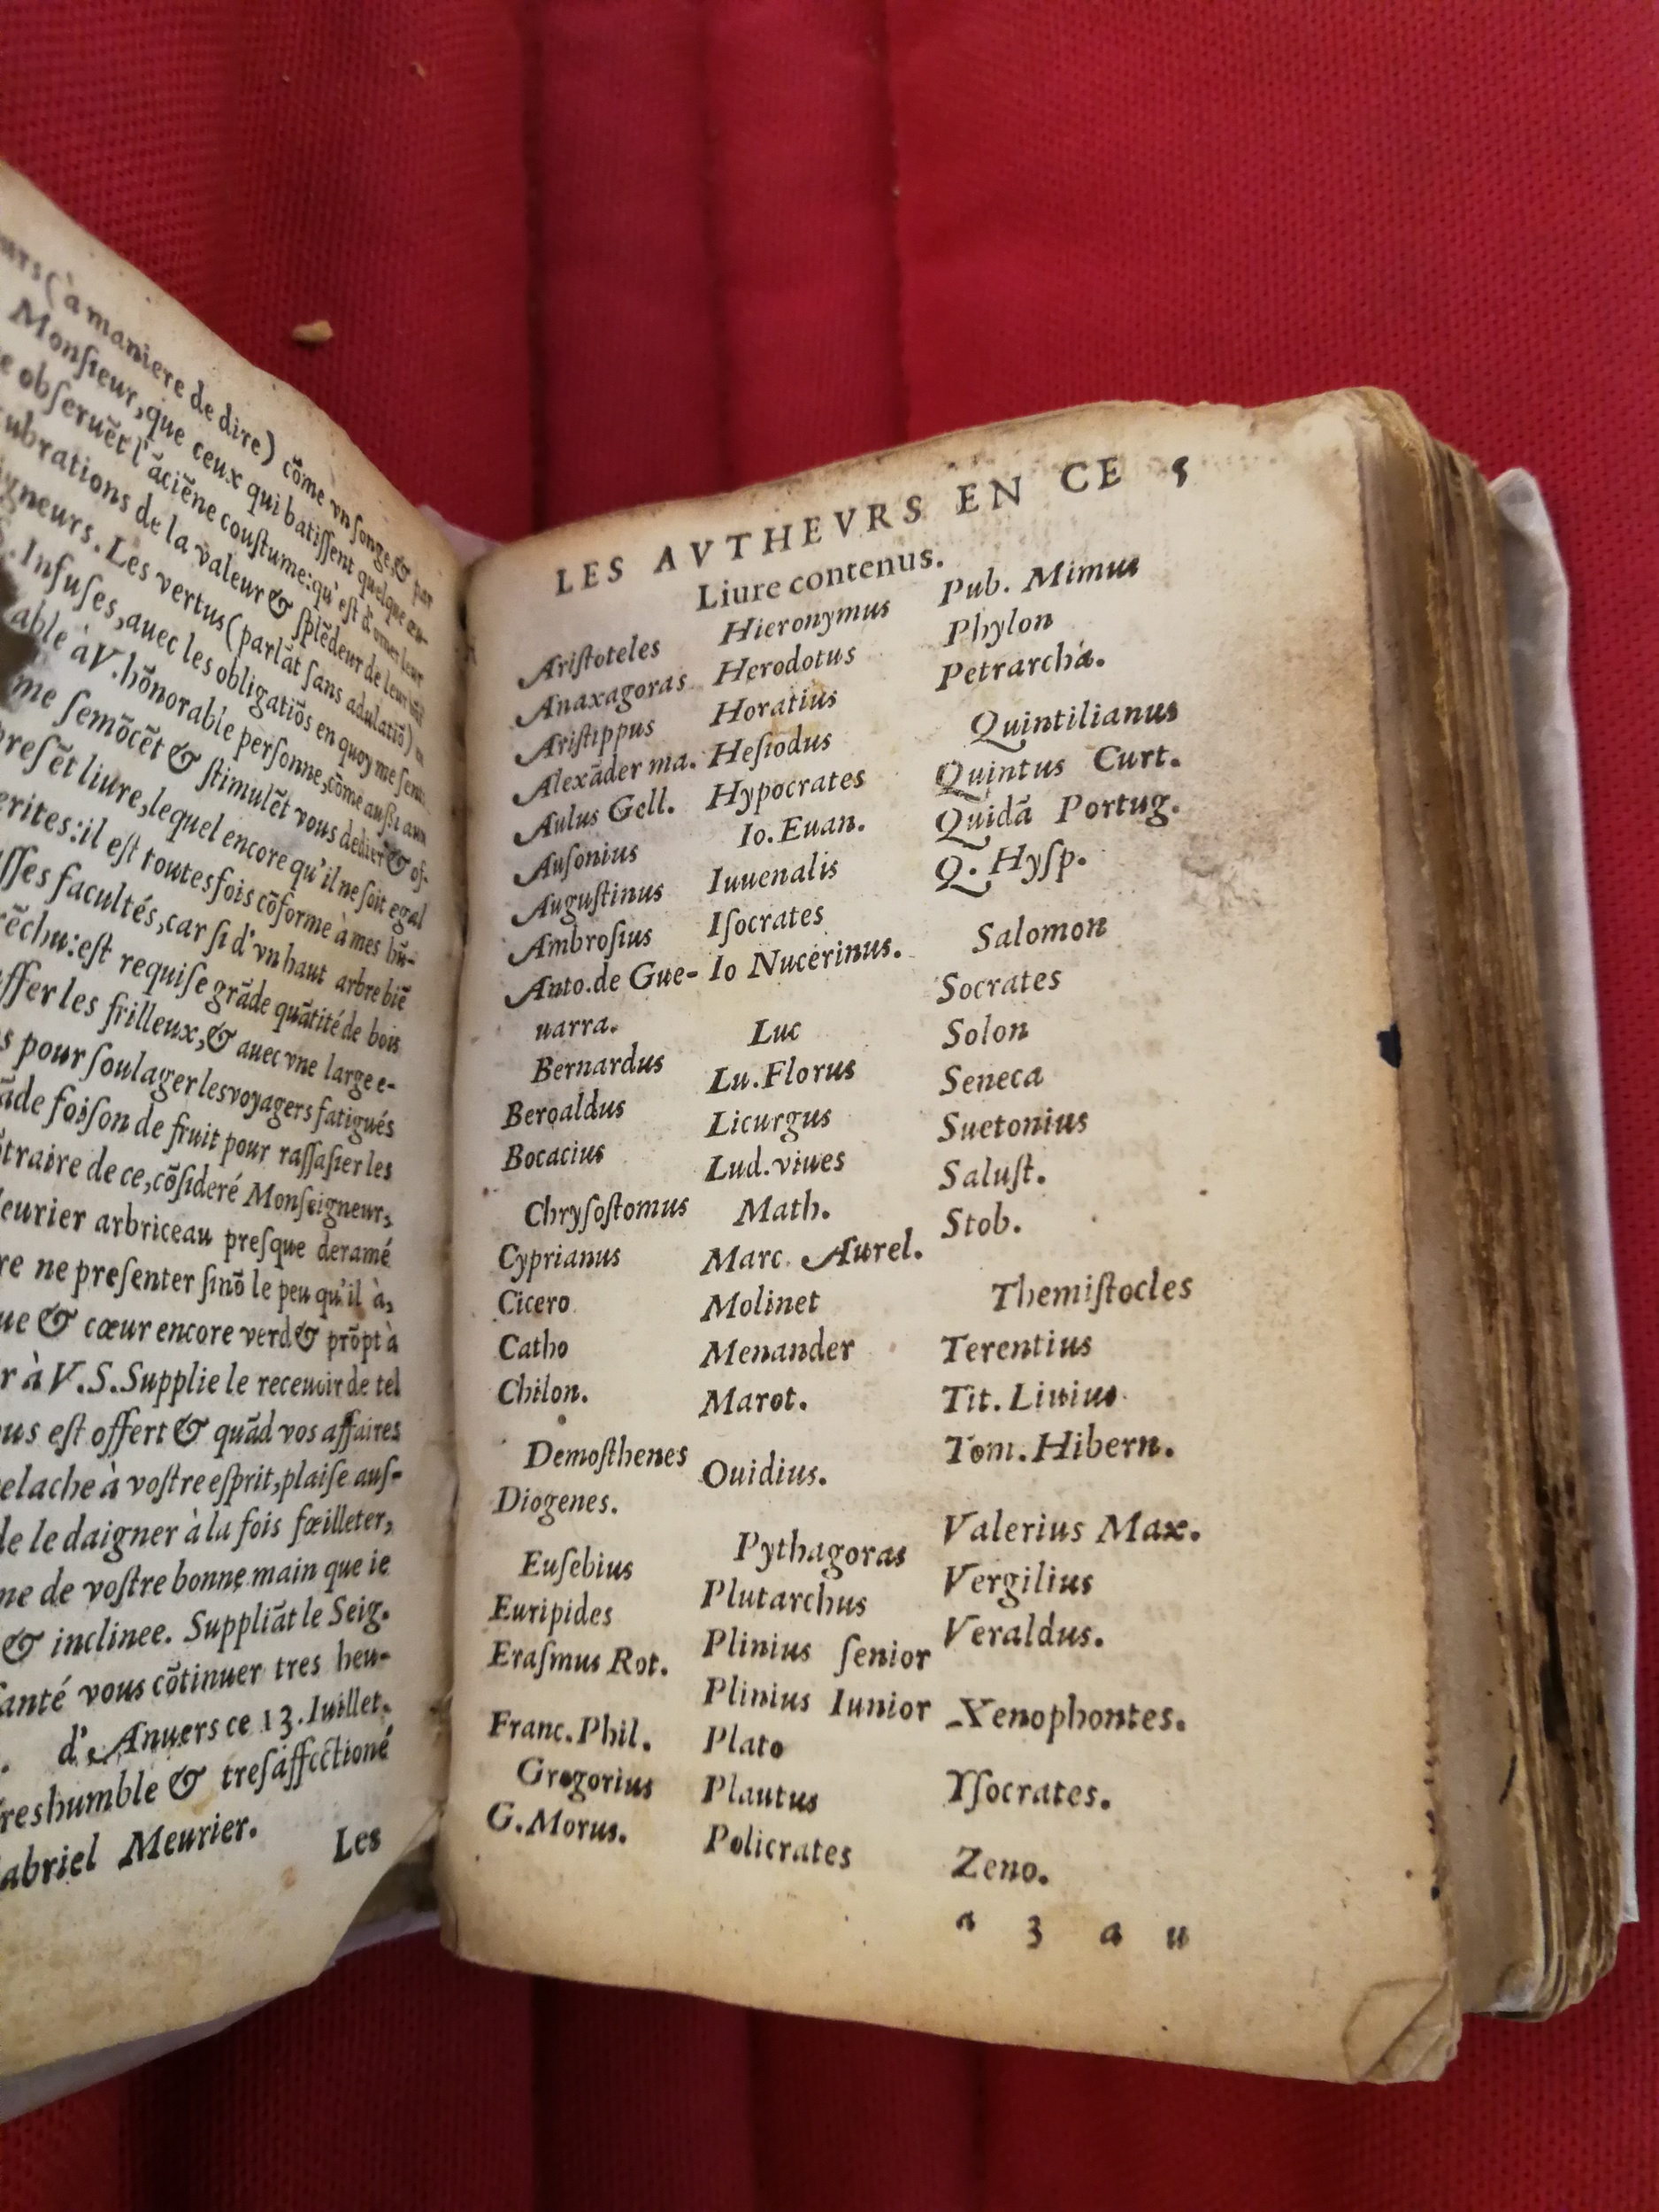 (à maniere de dire) cõme vn songe & par
Monsieur, que ceux qui batissent quelque œu-
obseruẽt l'ãciẽne coustume: qu'est d'orner leur
ubrations de la valeur & splẽdeur de leur
igneurs. Les vertus (parlãt sans adulatiõ)
Infuses, auec les obligatiõs en quoy me sens
able à V. hõnorable personne, cõme aussi aux
me semõcẽt & stimulẽt vous dedier & of-
presẽt liure, lequel encore qu'il ne soit egal
erites: il est toutesfois cõforme à mes hũ-
sses facultés, car si d'vn haut arbre biẽ
rẽchu: est requise grãde quãtité de bois
ffer les frilleux, & auec vne large e-
s pour soulager les voyagers fatigués
ãde foison de fruit pour rassasier les
traire de ce, cõsideré Monseigneur,
eurier arbriceau presque deramé
re ne presenter sinõ le peu qu'il à,
ue & cœur encore verd & prõpt à
r à V. S. Supplie le receuoir de tel
us est offert & quãd vos affaires
elache à vostre esprit, plaise aus-
de le daigner à la fois fœilleter,
ne de vostre bonne main que ie
& inclinee. Suppliãt le Seig.
santé vous cõtinuer tres heu-
d'Anuers ce 13. Iuillet.
treshumble & tresaffectioné
abriel Meurier.
Les
LES AVTHEVRS EN CE 5
Liure contenus.
Aristoteles
Anaxagoras
Aristippus
Alexãder ma.
Aulus Gell.
Ausonius
Augustinus
Ambrosius
Anto. de Gue-
uarra.
Bernardus
Beroaldus
Bocacius
Chrysostomus
Cyprianus
Cicero
Catho
Chilon.
Demosthenes
Diogenes.
Eusebius
Euripides
Erasmus Rot.
Franc. Phil.
Gregorius
G. Morus.
Hieronymus
Herodotus
Horatius
Hesiodus
Hypocrates
Io. Euan.
Iuuenalis
Isocrates
Io Nucerinus.
Luc
Lu. Florus
Licurgus
Lud. viues
Math.
Marc. Aurel.
Molinet
Menander
Marot.
Ouidius.
Pythagoras
Plutarchus
Plinius senior
Plinius Iunior
Plato
Plautus
Policrates
Pub. Mimus
Phylon
Petrarcha.
Quintilianus
Quintus Curt.
Quidã Portug.
Q. Hysp.
Salomon
Socrates
Solon
Seneca
Suetonius
Salust.
Stob.
Themistocles
Terentius
Tit. Liuius
Tom. Hibern.
Valerius Max.
Vergilius
Veraldus.
Xenophontes.
Ysocrates.
Zeno.
a 3 a u